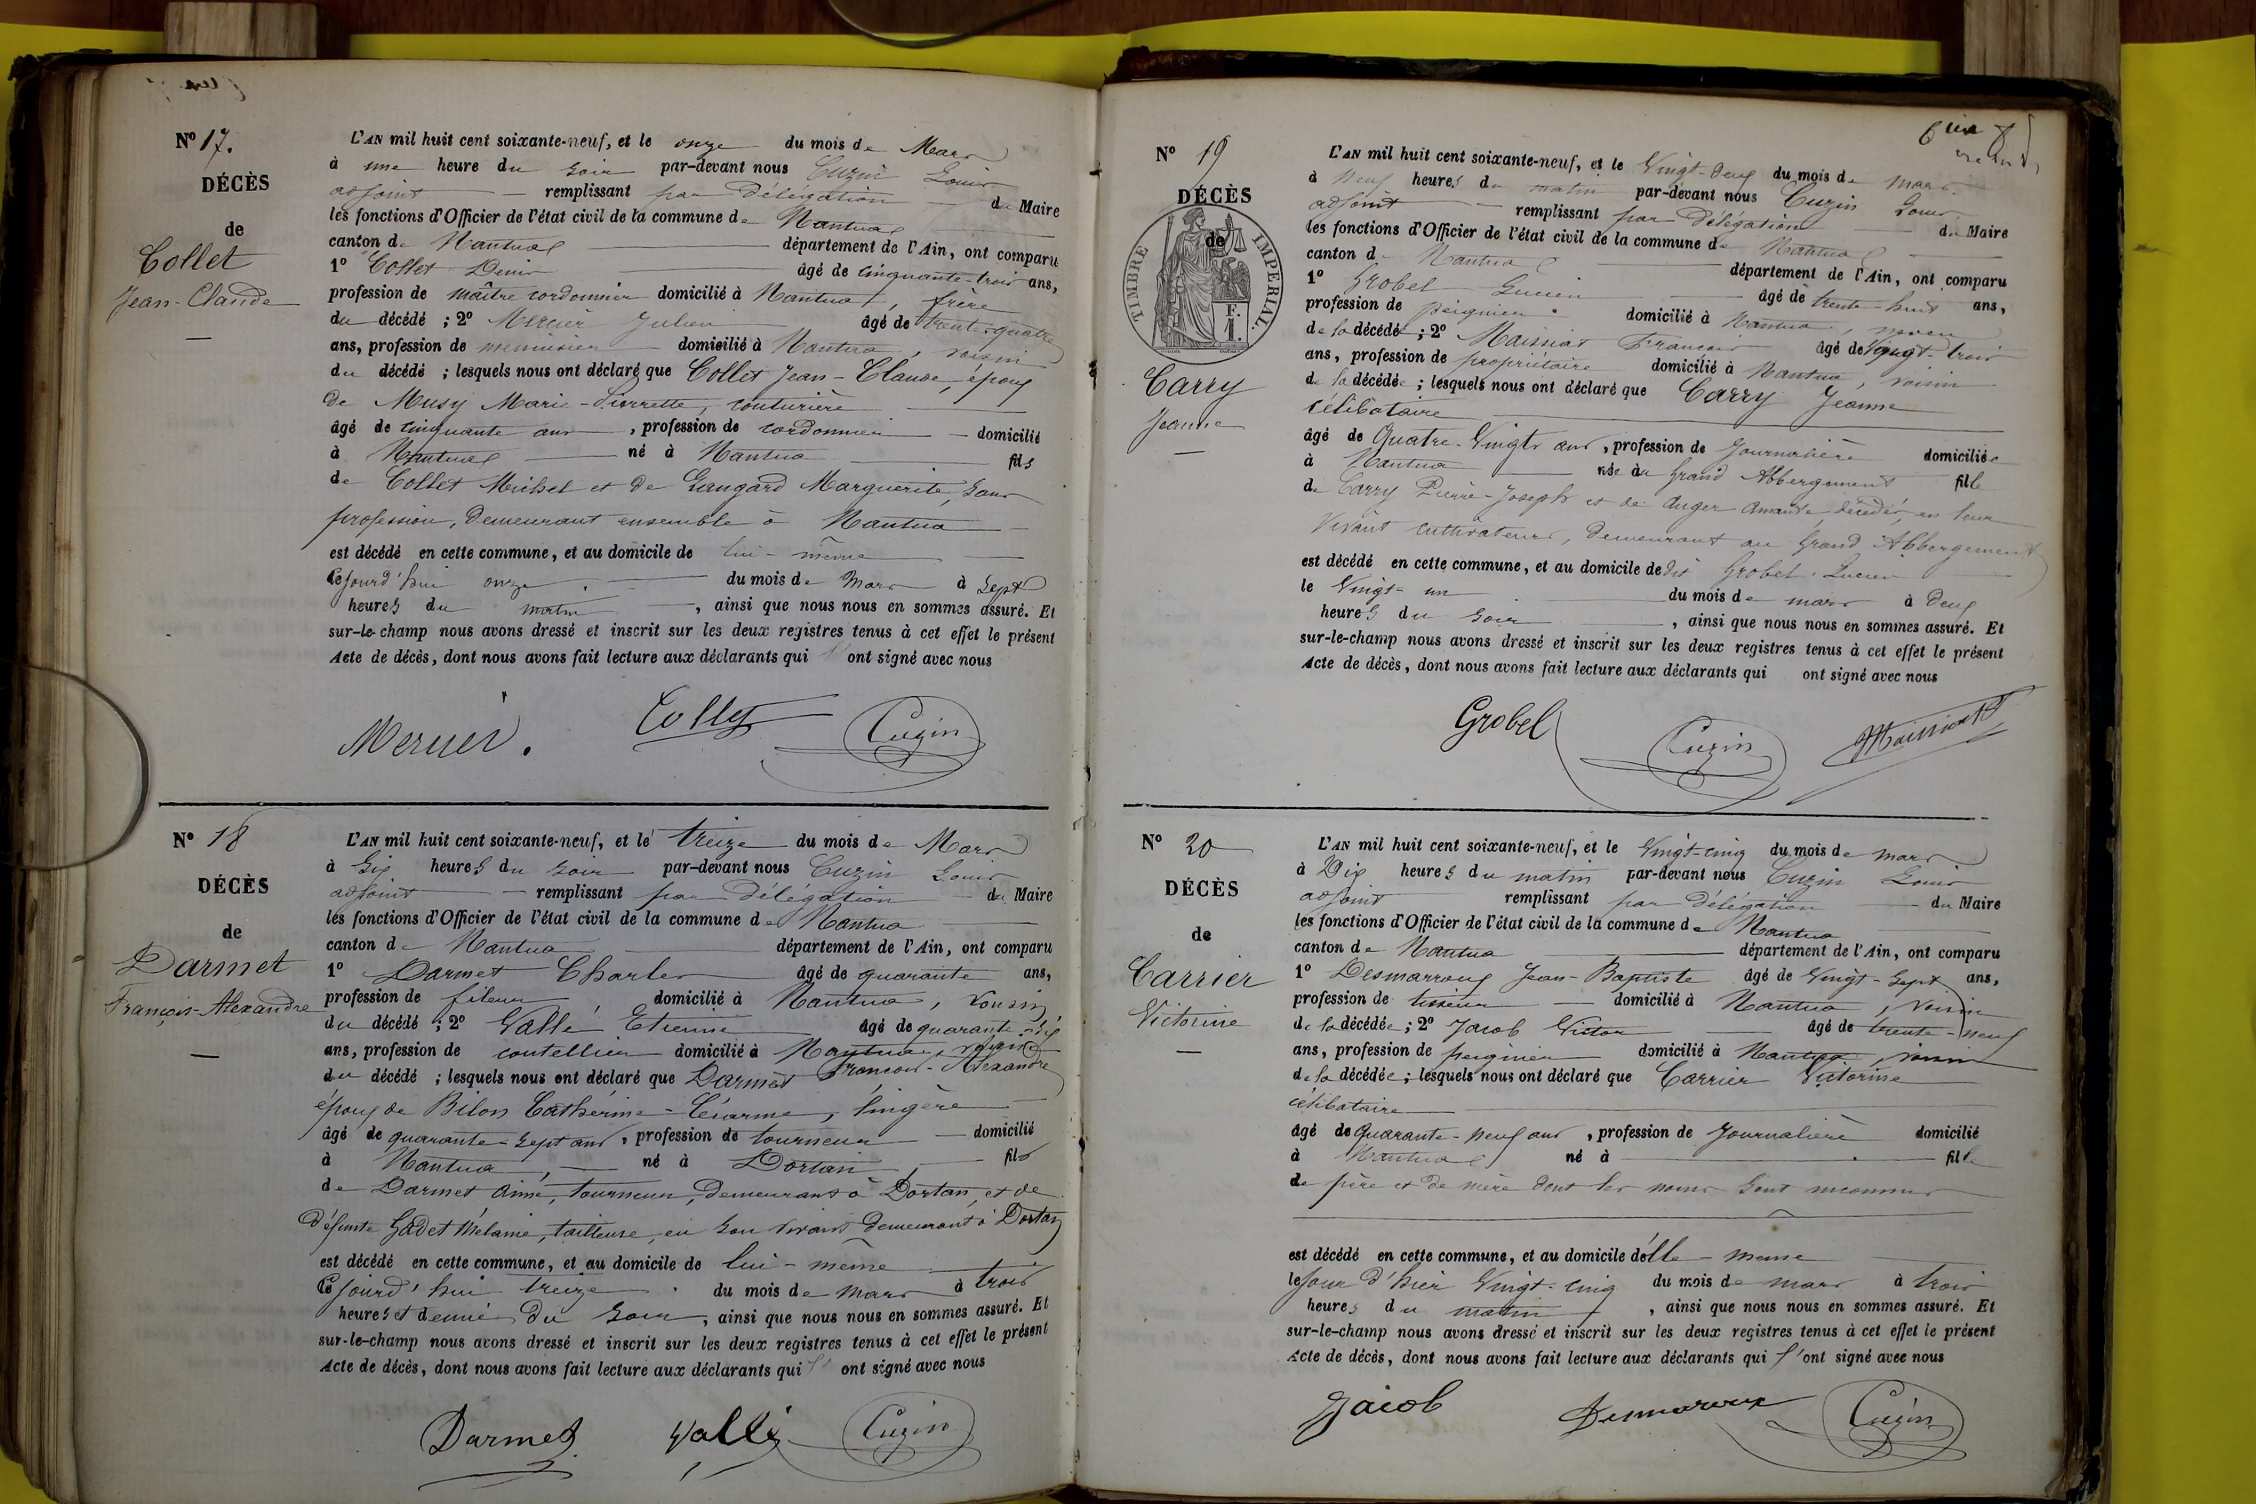 Nº 17.
DÉCÈS
de
Collet
Jean-Claude
L'AN mil huit cent soixante-neuf, et le onze du mois de Mars
à une heure du soir par-devant nous Cuzin Louis
adjoint remplissant par délégation du Maire
les fonctions d'Officier de l'état civil de la commune de Nantua
canton de Nantua département de l'Ain, ont comparu
1º Collet Denis âgé de cinquante-trois ans,
profession de maître cordonnier domicilié à Nantua, frère
du décédé ; 2º Mercier Julien âgé de trente-quatre
ans, profession de menuisier domicilié à Nantua, voisin
du décédé ; lesquels nous ont déclaré que Collet Jean-Claude, époux
de Musy Marie-Pierrette, couturière
âgé de cinquante ans, profession de cordonnier domicilié
à Nantua né à Nantua fils
de Collet Michel et de Gaugard Marguerite, sans
profession, demeurant ensemble à Nantua
est décédé en cette commune, et au domicile de lui-même
Cejourd'hui onze du mois de Mars à sept
heures du matin, ainsi que nous nous en sommes assuré. Et
sur-le-champ nous avons dressé et inscrit sur les deux registres tenus à cet effet le présent
Acte de décès, dont nous avons fait lecture aux déclarants qui l'ont signé avec nous
Mercier. Collet Cuzin
Nº 18
DÉCÈS
de
Darmet
François-Alexandre
L'AN mil huit cent soixante-neuf, et le treize du mois de Mars
à six heures du soir par-devant nous Cuzin Louis
adjoint remplissant par délégation du Maire
les fonctions d'Officier de l'état civil de la commune de Nantua
canton de Nantua département de l'Ain, ont comparu
1º Darmet Charles âgé de quarante ans,
profession de fileur domicilié à Nantua, cousin
du décédé ; 2º Vallé Etienne âgé de quarante-six
ans, profession de coutellier domicilié à Nantua, voisin
du décédé ; lesquels nous ont déclaré que Darmet François-Alexandre
époux de Bilon Catherine, lingère
âgé de quarante-sept ans, profession de tourneur domicilié
à Nantua, né à Dortan, fils
de Darmet Aimé, tourneur, demeurant à Dortan, et de
défunte Gadet Mélanie, tailleuse, en son vivant demeurant à Dortan
est décédé en cette commune, et au domicile de lui-même
Cejourd'hui treize du mois de Mars à trois
heures et demie du soir, ainsi que nous nous en sommes assuré. Et
sur-le-champ nous avons dressé et inscrit sur les deux registres tenus à cet effet le présent
Acte de décès, dont nous avons fait lecture aux déclarants qui l'ont signé avec nous
Darmet Vallé Cuzin
Nº 19
DÉCÈS
de
TIMBRE IMPERIAL.
F.
1.
Carry
Jeanne
L'AN mil huit cent soixante-neuf, et le Vingt-deux du mois de mars
à neuf heures du matin par-devant nous Cuzin Louis
adjoint remplissant par délégation du Maire
les fonctions d'Officier de l'état civil de la commune de Nantua
canton de Nantua département de l'Ain, ont comparu
1º Grobel Lucien âgé de trente-huit ans,
profession de peignier domicilié à Nantua, neveu
de la décédée ; 2º Maissiat François âgé de Vingt-trois
ans, profession de propriétaire domicilié à Nantua, voisin
de la décédée ; lesquels nous ont déclaré que Carry Jeanne
célibataire
âgé de Quatre-Vingts ans, profession de Journalière domiciliée
à Nantua née au Grand Abbergement fille
de Carry Pierre-Joseph et de Auger Amande, décédés, en leur
Vivant cultivateurs, demeurant au Grand Abbergement
est décédé en cette commune, et au domicile de dit Grobel Lucien
le Vingt-un du mois de mars à deux
heures du soir, ainsi que nous nous en sommes assuré. Et
sur-le-champ nous avons dressé et inscrit sur les deux registres tenus à cet effet le présent
Acte de décès, dont nous avons fait lecture aux déclarants qui ont signé avec nous
Grobel Cuzin Maissiat
Nº 20
DÉCÈS
de
Carrier
Victorine
L'AN mil huit cent soixante-neuf, et le Vingt-cinq du mois de mars
à Dix heures du matin par-devant nous Cuzin Louis
adjoint remplissant par délégation du Maire
les fonctions d'Officier de l'état civil de la commune de Nantua
canton de Nantua département de l'Ain, ont comparu
1º Desmarroux Jean-Baptiste âgé de Vingt-sept ans,
profession de tisseur domicilié à Nantua, voisin
de la décédée ; 2º Jacob Victor âgé de trente-neuf
ans, profession de peignier domicilié à Nantua, voisin
de la décédée ; lesquels nous ont déclaré que Carrier Victorine
célibataire
âgé de quarante-neuf ans, profession de Journalière domicilié
à Nantua né à fille
de père et de mère dont les noms sont inconnus
est décédé en cette commune, et au domicile d'elle-même
le jour d'hier Vingt-cinq du mois de mars à trois
heures du matin, ainsi que nous nous en sommes assuré. Et
sur-le-champ nous avons dressé et inscrit sur les deux registres tenus à cet effet le présent
Acte de décès, dont nous avons fait lecture aux déclarants qui l'ont signé avec nous
Jacob Desmaroux Cuzin